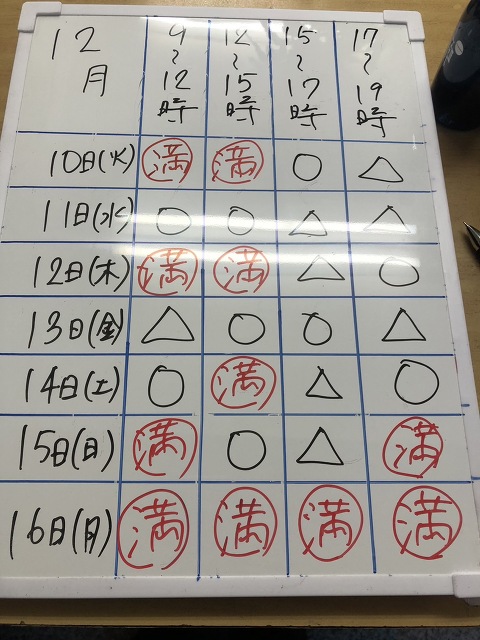 12月 9~12時 12~15時 15~17時 17~19時
10日(火) 満 満 ○ △
11日(水) ○ ○ △ △
12日(木) 満 満 △ ○
13日(金) △ ○ ○ △
14日(土) ○ 満 △ ○
15日(日) 満 ○ △ 満
16日(月) 満 満 満 満